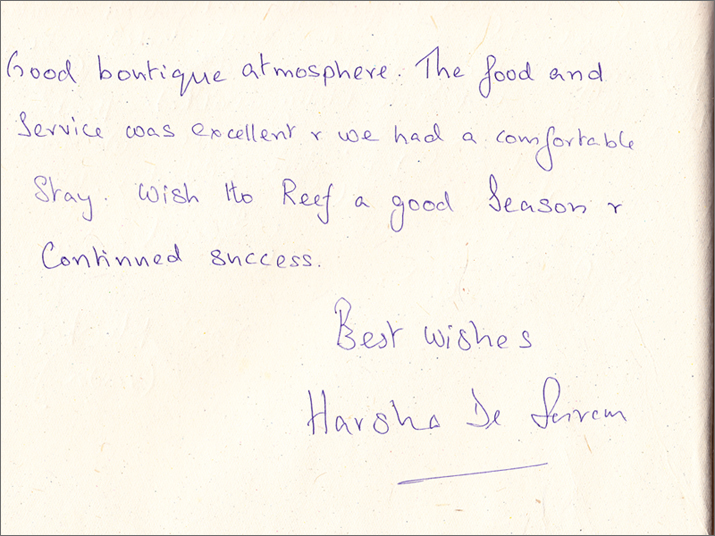 Good boutique atmosphere. The food and
Service was excellent & we had a comfortable
Stay. Wish Reef a good Season &
Continued success.
Best wishes
Harsha De